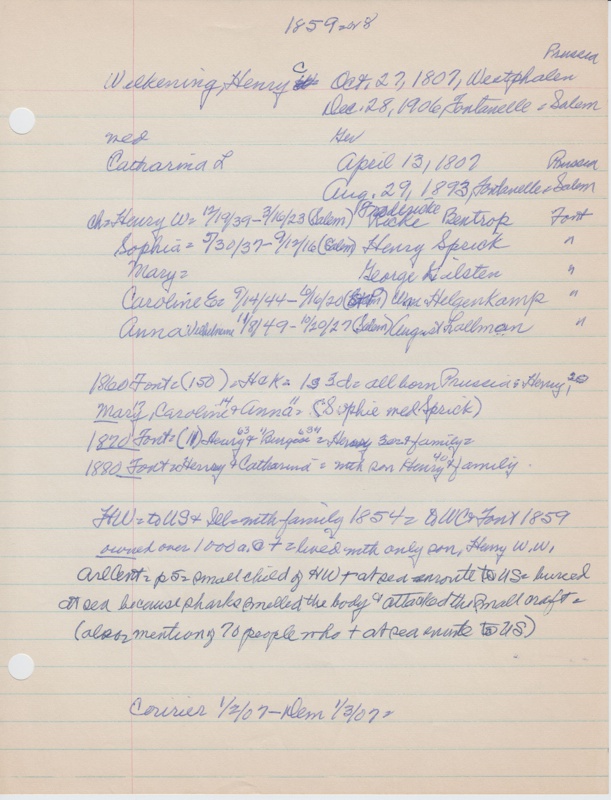 1859
Prussia
Wilkening, Henry C Oct. 27, 1807, Westphalen
Dec. 28, 1906, Fontanelle = Salem
med Ger
Catharina L April 13, 1807 Prussia
Aug. 29, 1893, Fontanelle = Salem
ch = Henry W = 12/19/39 - 3/16/23 (Salem) Fredericke Bentrop Font
Sophia = 5/30/37 - 9/12/16 (Salem) Henry Sprick "
Mary = George Hilsten "
Caroline E = 9/14/44 - 10/16/20 Wm. Helgenkamp "
Anna Wilhelmina 11/8/49 - 10/20/27 (Salem) August Sallman "
1860 Font = (150) = H & K = 1 s 3 d = all born Prussia = Henry, 20
Mary, Caroline 14 & Anna 11 = (Sophie med Sprick)
1870 Font = (11) Henry 63 & 63 = Henry & family =
1880 Font = Henry & Catharina = with son Henry 40 & family.
HW = to US & Ill = with family 1854 = to WC & Font 1859
owned over 1000 a. + = lived with only son, Henry W. W.
Arl Cent = p 5 = small child of HW + at sea enroute to US = buried
at sea because sharks smelled the body & attacked the small craft =
(also mentions 70 people who + at sea enroute to US)
Courier 1/2/07 - Dem 1/3/07 =